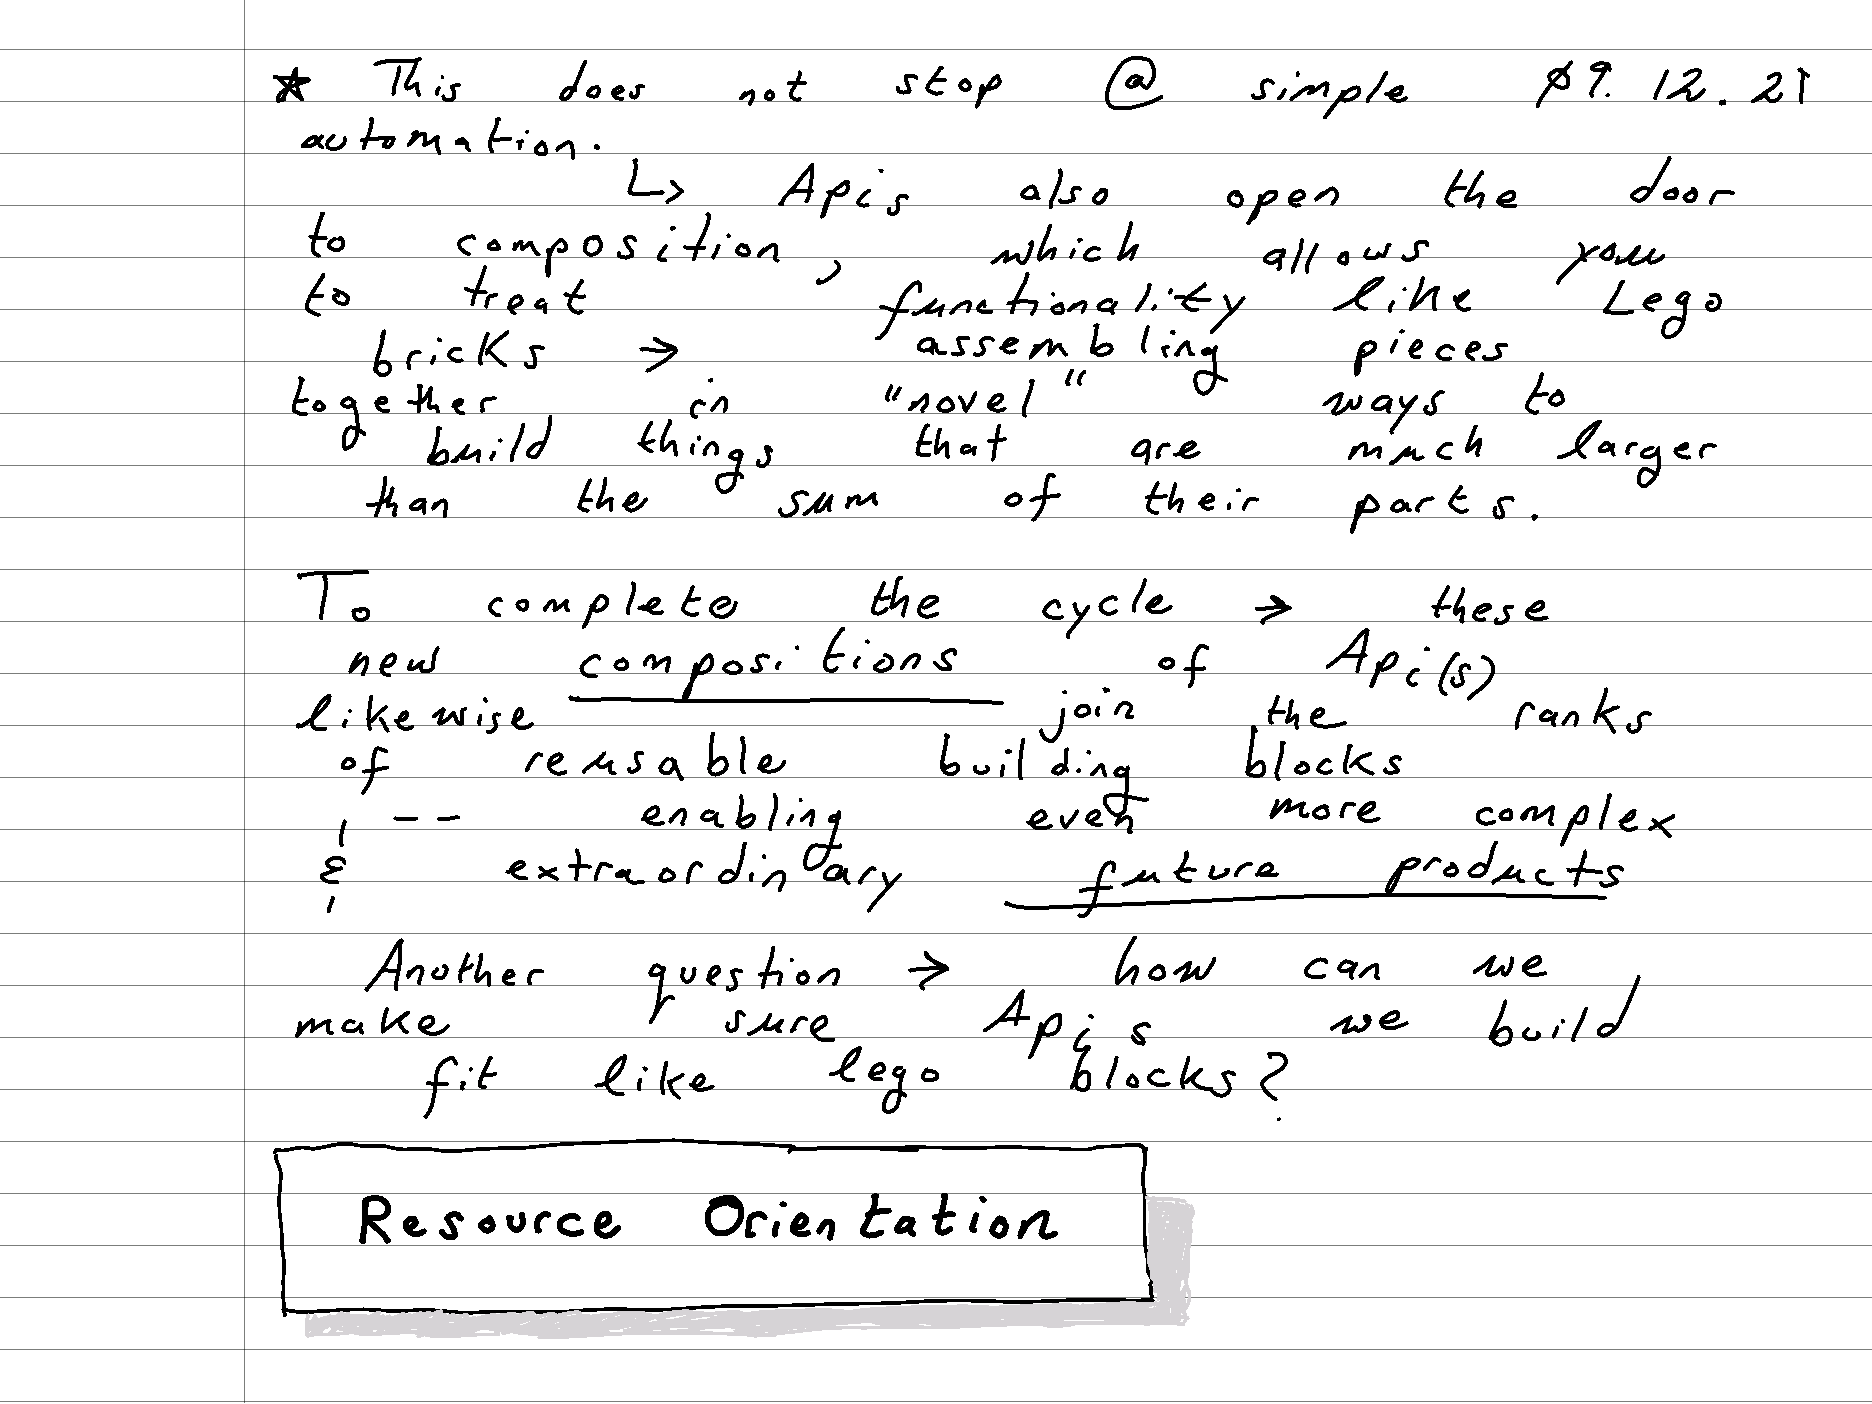 ★ This does not stop @ simple 09.12.21
automation.
↳ Apis also open the door
to composition, which allows you
to treat functionality like Lego
bricks → assembling pieces
together in "novel" ways to
build things that are much larger
than the sum of their parts.
To complete the cycle → these
new compositions of Api(s)
likewise join the ranks
of reusable building blocks
-- enabling even more complex
& extraordinary future products
Another question → how can we
make sure Apis we build
fit like lego blocks?
Resource Orientation